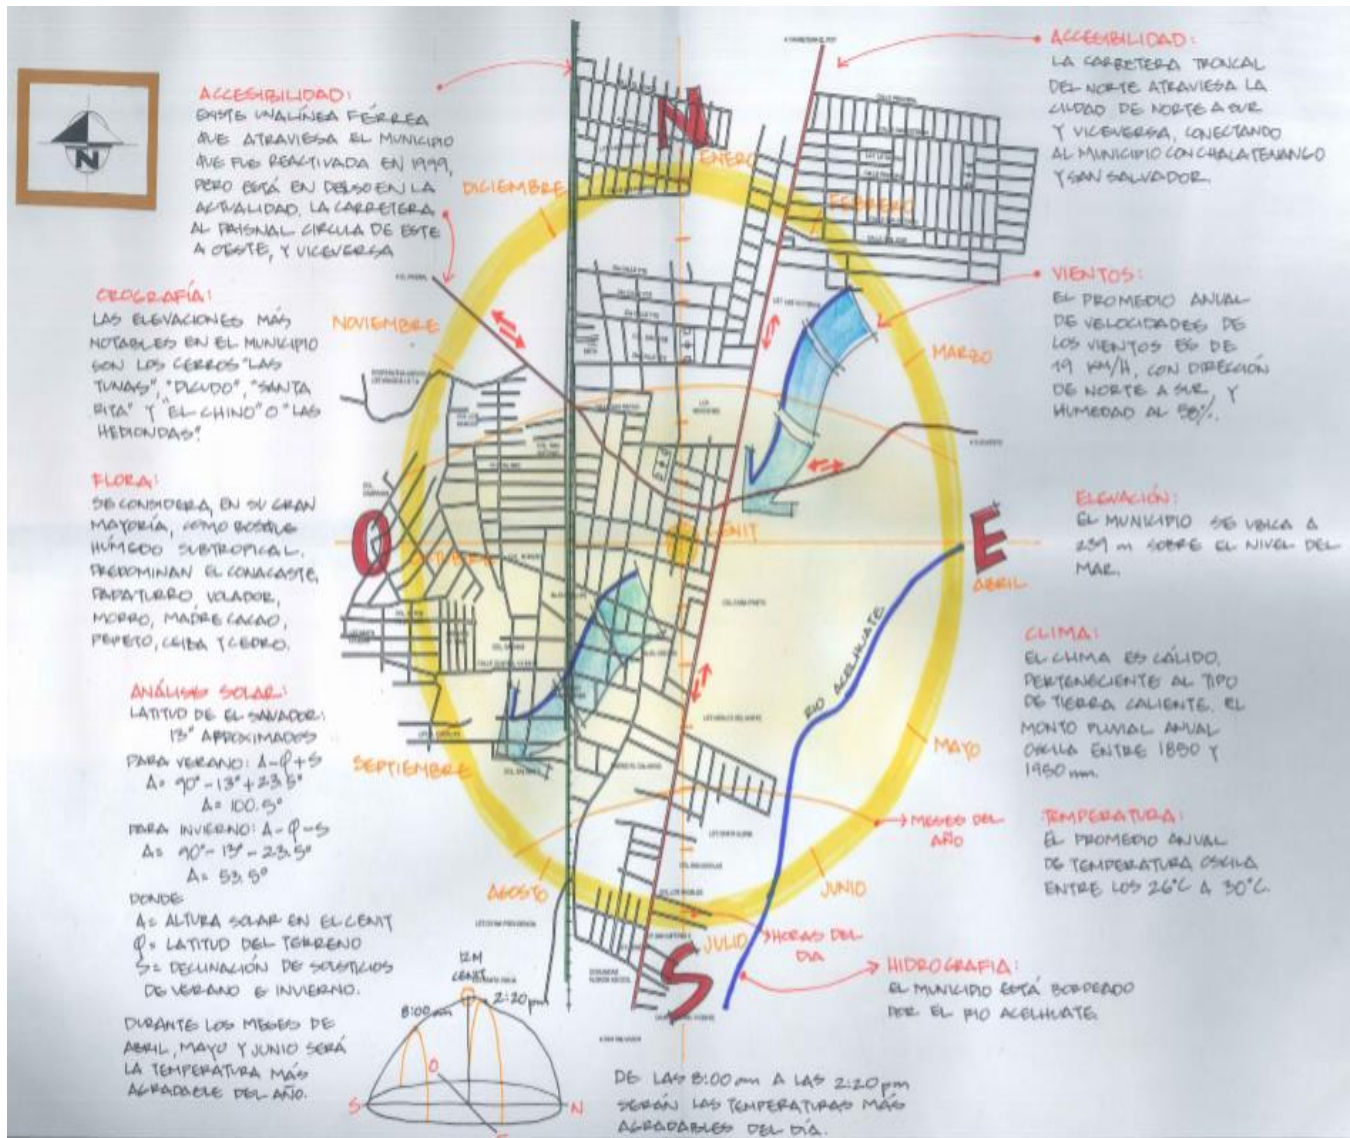 N
ACCESIBILIDAD:
EXISTE UNA LÍNEA FÉRREA
QUE ATRAVIESA EL MUNICIPIO
QUE FUE REACTIVADA EN 1999,
PERO ESTÁ EN DESUSO EN LA
ACTUALIDAD. LA CARRETERA
AL PAISNAL CIRCULA DE ESTE
A OESTE, Y VICEVERSA
OROGRAFÍA:
LAS ELEVACIONES MÁS
NOTABLES EN EL MUNICIPIO
SON LOS CERROS "LAS
TUNAS", "PICUDO", "SANTA
RITA" Y "EL CHINO" O "LAS
HEDIONDAS".
FLORA:
SE CONSIDERA, EN SU GRAN
MAYORÍA, COMO BOSQUE
HÚMEDO SUBTROPICAL.
PREDOMINAN EL CONACASTE,
PAPATURRO, VOLADOR,
MORRO, MADRE CACAO,
PEPETO, CEIBA Y CEDRO.
ANÁLISIS SOLAR:
LATITUD DE EL SAVADOR:
13° APROXIMADOS
PARA VERANO: A-φ+S
A= 90°-13°+23.5°
A= 100.5°
PARA INVIERNO: A-φ-S
A= 90°-13°-23.5°
A= 53.5°
DONDE
A= ALTURA SOLAR EN EL CENIT
φ= LATITUD DEL TERRENO
S= DECLINACIÓN DE SOLSTICIOS
DE VERANO E INVIERNO.
DURANTE LOS MESES DE
ABRIL, MAYO Y JUNIO SERÁ
LA TEMPERATURA MÁS
AGRADABLE DEL AÑO.
N
ENERO
DICIEMBRE
FEBRERO
NOVIEMBRE
MARZO
O
OCTUBRE
CENIT
E
ABRIL
RIO ACELHUATE
SEPTIEMBRE
MAYO
MESES DEL
AÑO
AGOSTO
JUNIO
JULIO
HORAS DEL
DIA
S
12M
CENIT
8:00am
2:20pm
O
S
N
E
DE LAS 8:00am A LAS 2:20pm
SERÁN LAS TEMPERATURAS MÁS
AGRADABLES DEL DÍA.
ACCESIBILIDAD:
LA CARRETERA TRONCAL
DEL NORTE ATRAVIESA LA
CIUDAD DE NORTE A SUR
Y VICEVERSA, CONECTANDO
AL MUNICIPIO CON CHALATENANGO
Y SAN SALVADOR.
VIENTOS:
EL PROMEDIO ANUAL
DE VELOCIDADES DE
LOS VIENTOS ES DE
19 KM/H, CON DIRECCIÓN
DE NORTE A SUR, Y
HUMEDAD AL 58%.
ELEVACIÓN:
EL MUNICIPIO SE UBICA A
239 m SOBRE EL NIVEL DEL
MAR.
CLIMA:
EL CLIMA ES CÁLIDO,
PERTENECIENTE AL TIPO
DE TIERRA CALIENTE. EL
MONTO PLUVIAL ANUAL
OSCILA ENTRE 1850 Y
1950 mm.
TEMPERATURA:
EL PROMEDIO ANUAL
DE TEMPERATURA OSCILA
ENTRE LOS 26°C A 30°C.
HIDROGRAFIA:
EL MUNICIPIO ESTÁ BORDEADO
POR EL RIO ACELHUATE